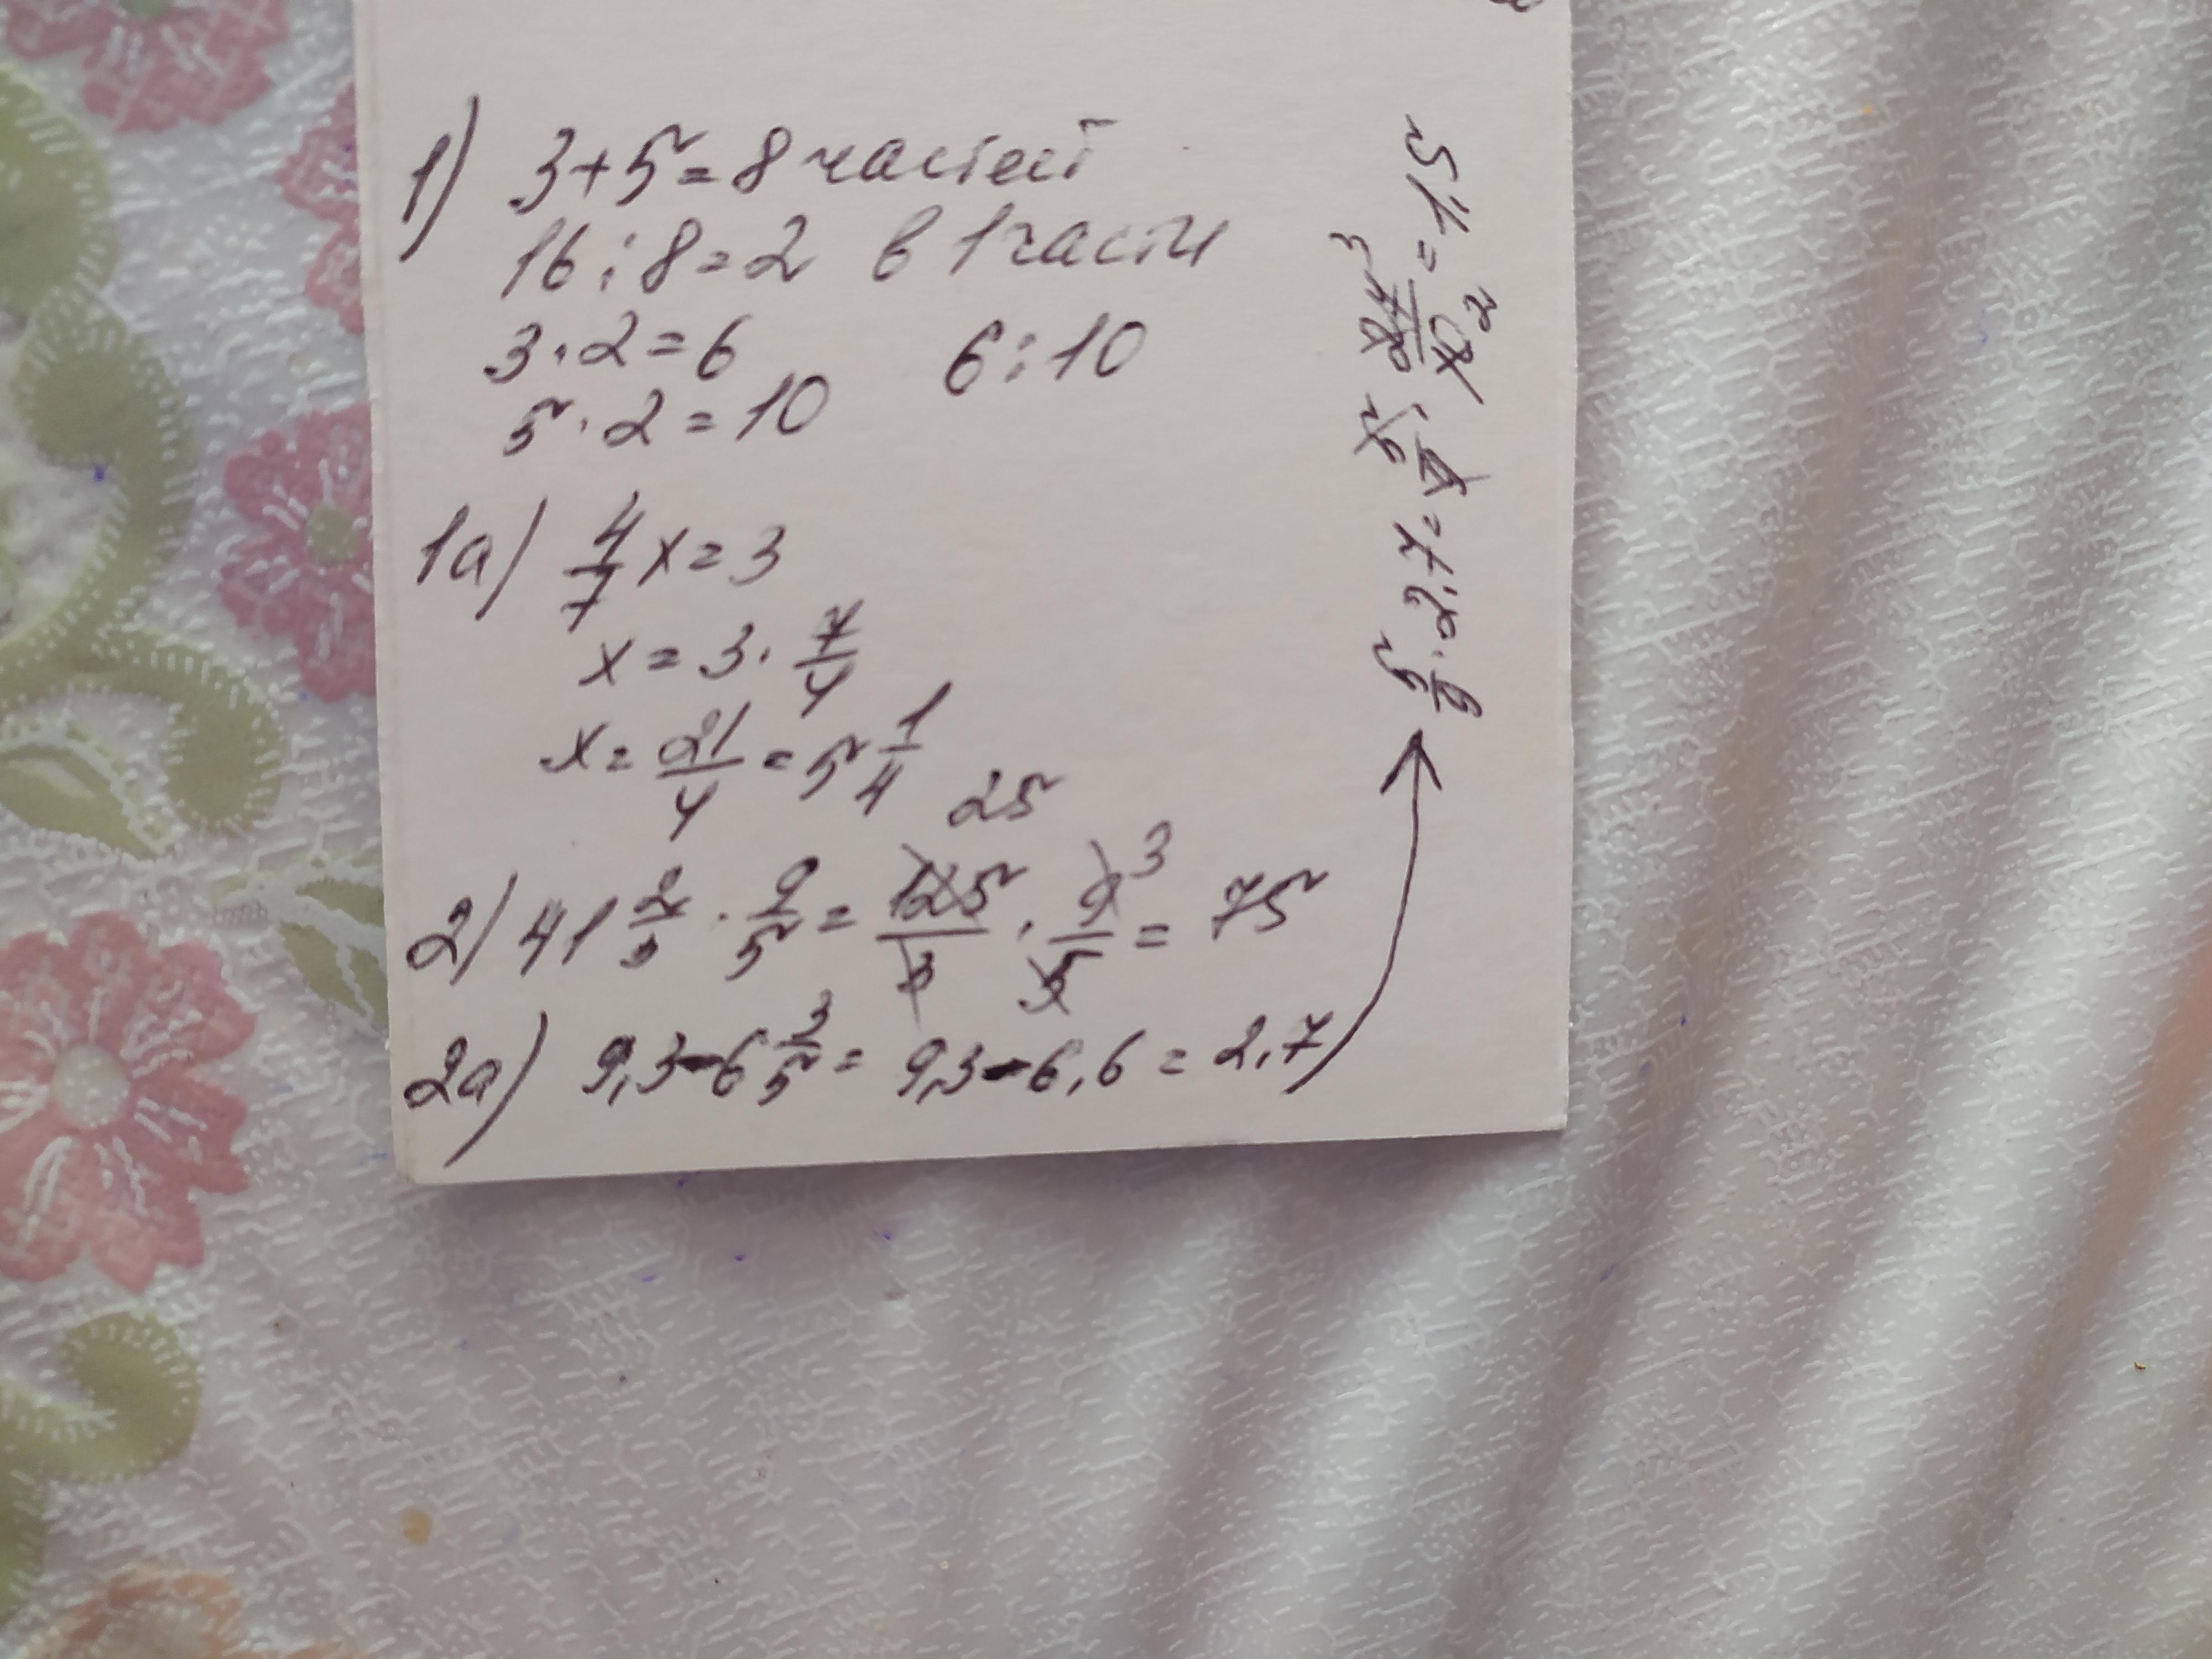 1) 3+5=8 частей
16:8=2 в 1 части
3·2=6 6:10
5·2=10
1а) 4/7 x=3
x=3·7/4
x=21/4=5 1/4
2) 41 2/3 · 9/5 = 125/3 · 9/5 = 75
25 3
2а) 9,3-6 3/5 = 9,3-6,6=2,7
5/9 · 2,7 = 5/9 · 27/10 = 1,5
3 2